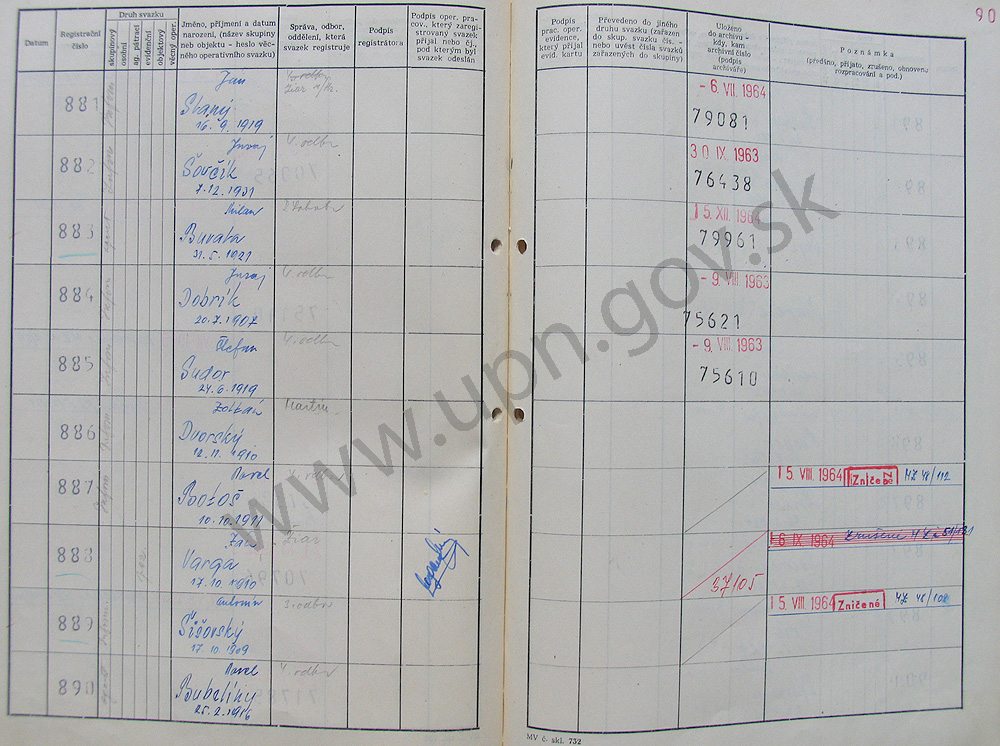 90
Datum
Registrační číslo
Druh svazku
skupinový
osobní
ag. pátrací
evidenční
objektový
věcný oper.
Jméno, příjmení a datum
narození, (název skupiny
neb objektu - heslo věc-
ného operativního svazku)
Správa, odbor,
oddělení, která
svazek registruje
Podpis
registrátora
Podpis oper. pra-
cov., který zaregi-
strovaný svazek
přijal nebo čj.,
pod kterým byl
svazek odeslán
Podpis
prac. oper.
evidence,
který přijal
evid. kartu
Převedeno do jiného
druhu svazku (zařazen
do skup. svazku čís. -
nebo uvést čísla svazků
zařazených do skupiny)
Uloženo
do archivu -
kdy, kam
archivní číslo
(podpis
archiváře)
Poznámka
(předáno, přijato, zrušeno, obnoveno,
rozpracování a pod.)
881
Jan
Starý
16. 9. 1919
- 6. VII. 1964
79081
882
Juraj
Šovčík
7. 12. 1931
V. odbor
30 IX. 1963
76438
883
Milan
Buvala
31. 5. 1921
15. XII. 1964
79961
884
Juraj
Dobrík
20. 7. 1907
V. odbor
- 9. VIII. 1963
75621
885
Štefan
Sudor
24. 6. 1919
V. odbor
- 9. VIII. 1963
75610
886
Zoltán
Dvorský
12. 11. 1910
Martin
887
Pavel
Bozoš
10. 10. 1911
V. odbor
15. VIII. 1964 Zničené
888
Ján
Varga
17. 10. 1910
Žiar
37105
6 IX. 1964
889
Antonín
Šišovský
17. 10. 1909
3. odbor
15. VIII. 1964 Zničené
890
Pavel
Bubeliny
25. 2. 1916
V. odbor
MV č. skl. 732
www.upn.gov.sk